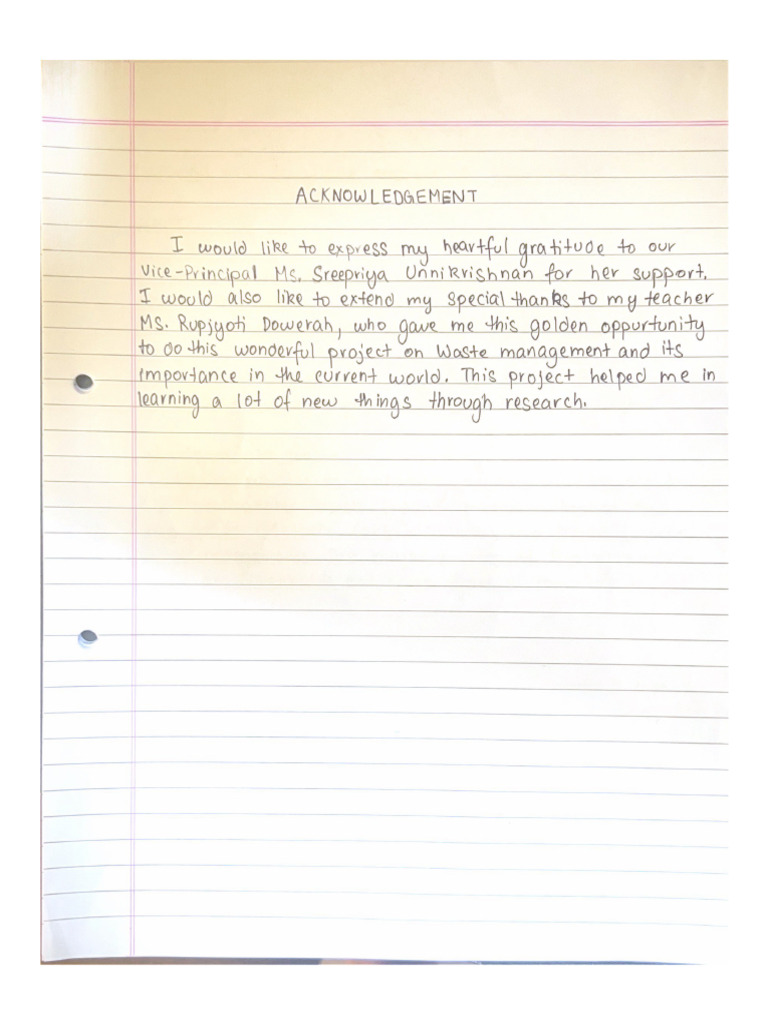 ACKNOWLEDGEMENT
I would like to express my heartful gratitude to our
Vice-Principal Ms. Sreepriya Unnikrishnan for her support.
I would also like to extend my special thanks to my teacher
MS. Rupjyoti Dowerah, who gave me this golden oppurtunity
to do this wonderful project on Waste management and its
importance in the current world. This project helped me in
learning a lot of new things through research.